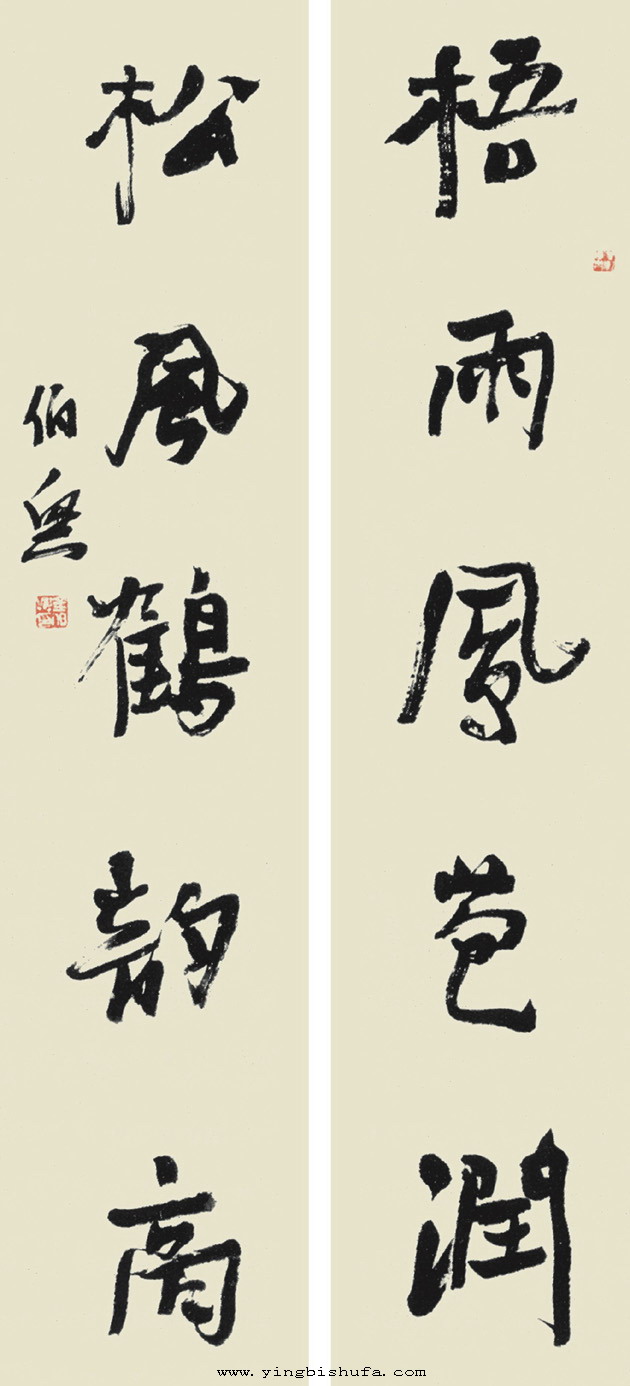 梧雨鳳苞潤
松風鶴韵高
伯無
www.yingbishufa.com